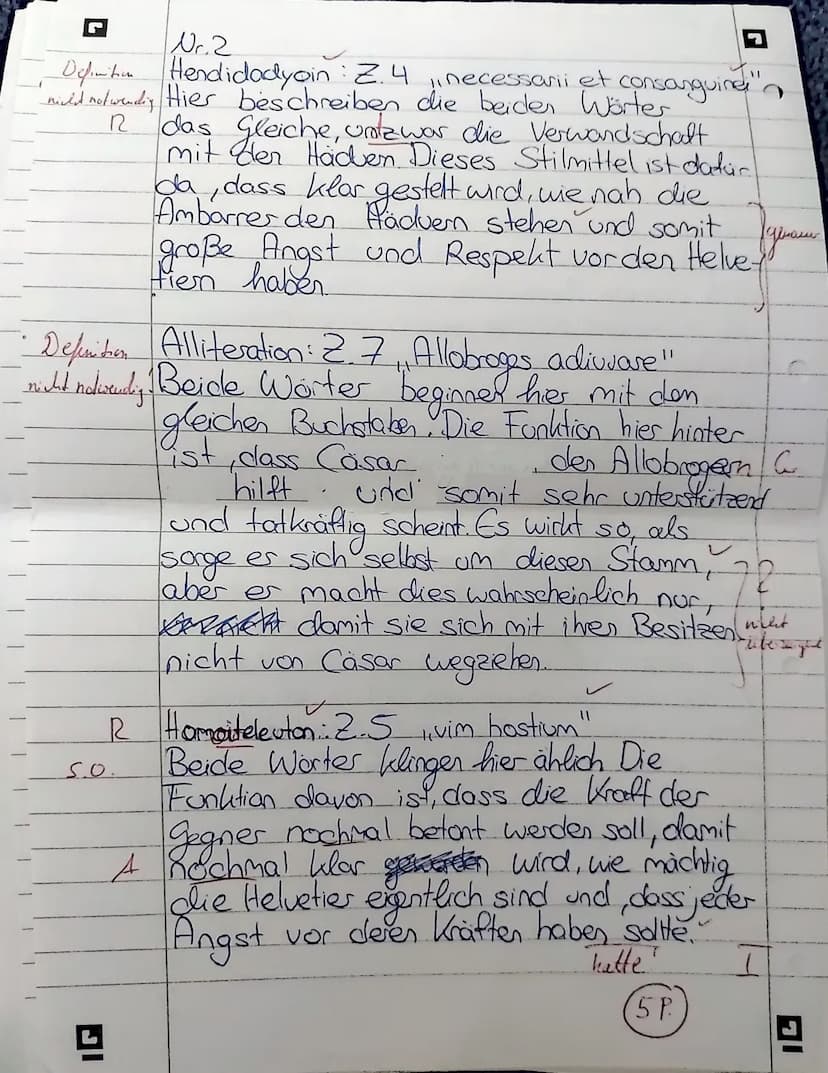 Nr. 2
Definition
Hendidodyoin : Z. 4 „necessarii et consanguinei"
nicht notwendig
Hier beschreiben die beiden Wörter
R
das Gleiche, undzwar die Verwandschaft
mit den Häduern. Dieses Stilmittel ist dafür
da, dass klar gestellt wird, wie nah die
Ambarrer den Häduern stehen und somit
genauer
große Angst und Respekt vor den Helve-
tiern haben.
Definition
Alliteration: Z. 7 „Allobroges adiuvare"
nicht notwendig!
Beide Wörter beginnen hier mit den
gleichen Buchstaben. Die Funktion hier hinter
ist, dass Cäsar den Allobrogern
G
hilft und somit sehr unterstützend
und tatkräftig scheint. Es wirkt so, als
sorge er sich selbst um diesen Stamm,
?
aber er macht dies wahrscheinlich nur,
damit sie sich mit ihren Besitzen
nicht
nicht von Cäsar wegziehen.
R
Homoiteleuton: Z. 5 „vim hostium"
s.o.
Beide Wörter klingen hier ählich. Die
Funktion davon ist, dass die Kraft der
Gegner nochmal betont werden soll, damit
A
nochmal klar wird, wie mächtig
die Helvetier eigentlich sind und, dass jeder
Angst vor deren Kräften haben sollte.
hatte
I
5 P.